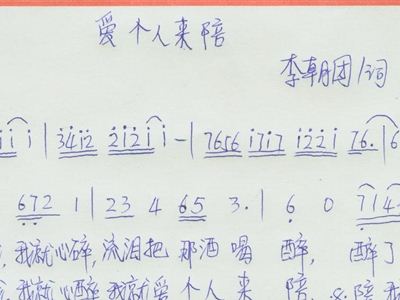 爱个人来陪
李朝团/词
i i | 3412 2121 i - | 7656 1717 1221 76. | 6
672 1 | 23 4 65 3. | 6 0 714
我就心碎,流泪把那酒喝醉,醉了
我就心醉我就爱个人来陪.